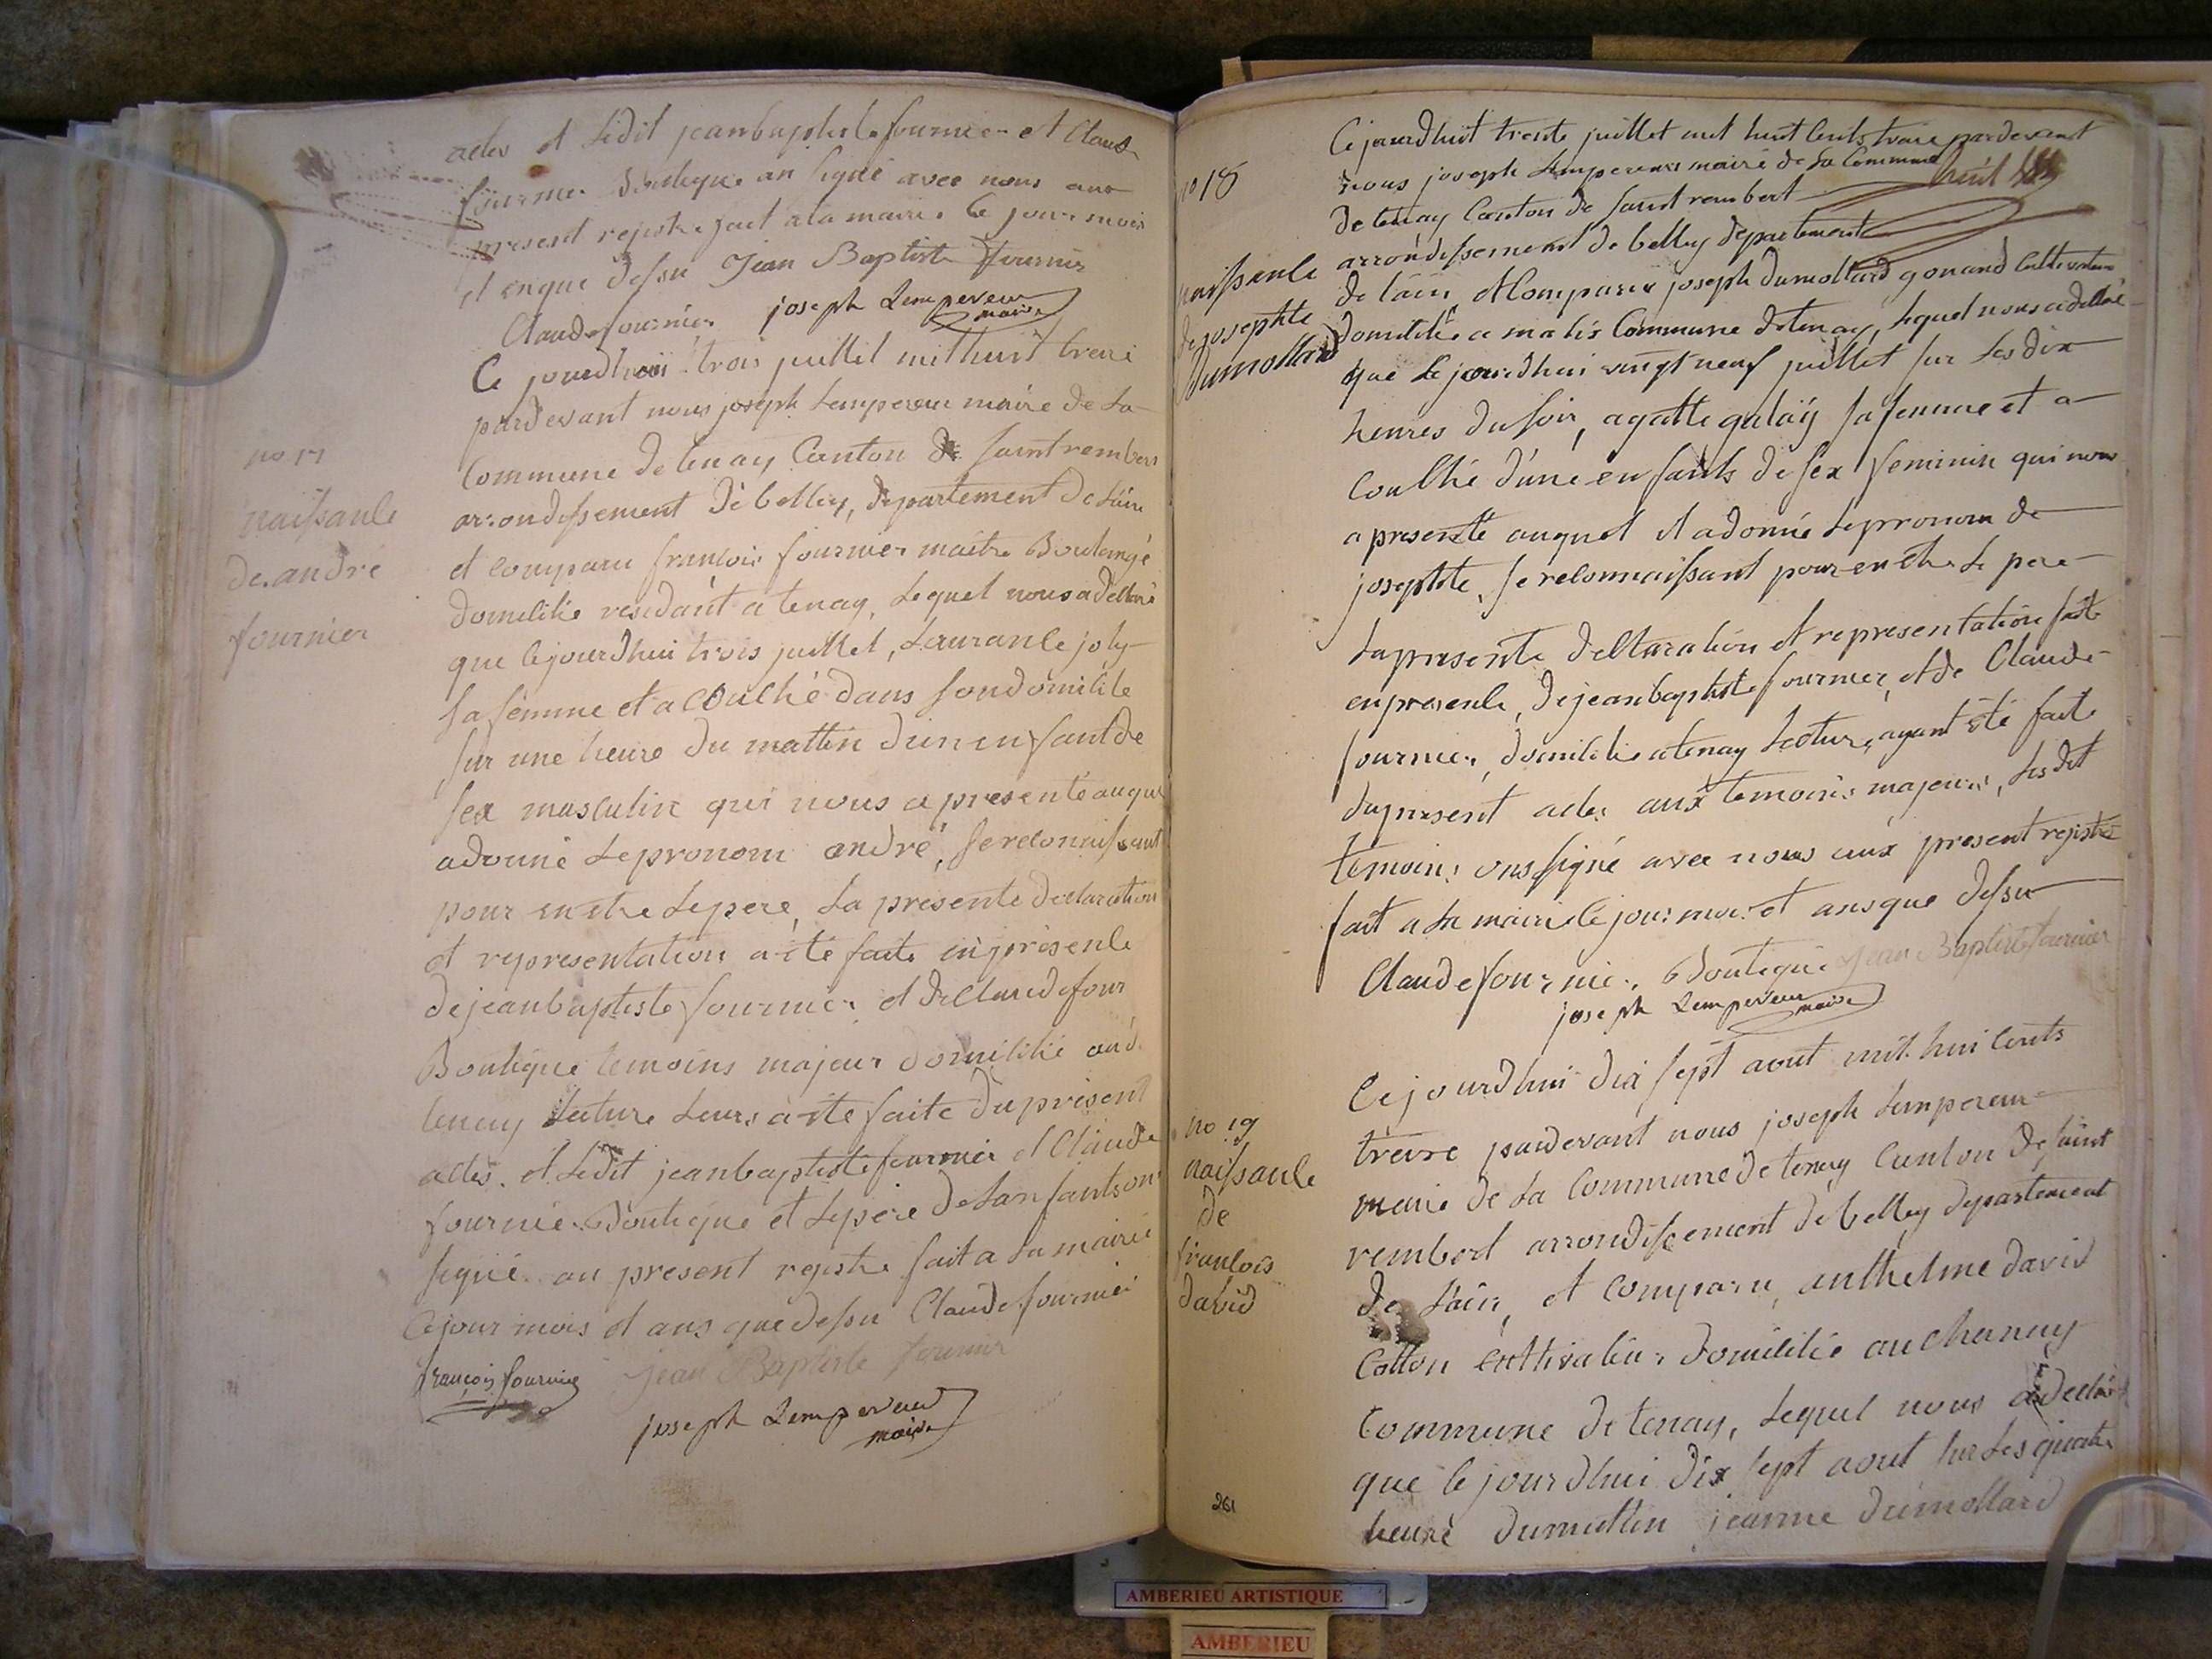 actes et ledit jeanbaptiste fournier et Claude
fournier Boutique an signé avec nous aux
present rejistre fait a la mairie le jour mois
et en que dessu Jean Baptiste fournier
Claude fournier joseph Lempereur maire
no 17
naissance
de andré
fournier
Ce jourdhuii trois juillet mil huit treize
pardevant nous joseph Lempereur maire de La
Commune de tenay Canton de saint rembert
arrondissement de belley, departement de Lain
et comparu francois fournier maitre Boulangé
domicilié residant a tenay, Lequel nous a declaré
que cejourdhui trois juillet, Laurance joly
sa femme et acouché dans son domicile
sur une heure du mattin dun enfant de
sex masculin qui nous a presenté auquel
adonné Lepronom andré, sereconnaissant
pour en etre Lepere, La presente declaration
et representation a été faite en presence
de jeanbaptiste fournier et de Claude four
Boutique temoins majeur domicilié aud.
tenay Lecture Leurs a été faite du present
actes. et Ledit jeanbaptiste fournier et Claude
fournier Boutique et Lepere de Lanfants ont
signé au present rejistre fait a La mairie
Cejour mois et ans que dessu Claude fournier
françois fournier Jean Baptiste fournier
joseph Lempereur
maire
no 18
naissance
de josephte
Dumollard
Cejourdhuit trente juillet mil huit Cents treize pardevant
nous joseph Lempereur maire de La Commune
de tenay Canton de saint rembert
arrondissement de belley departement
de lain, et Comparu joseph dumollard gonand Cultivateur
domicilié a malis Commune de tenay, Lequel nous a declaré
que Lejourdhui vingt neuf juillet sur Les dix
heures du soir, agatte galay sa femme et a
couché dune enfants de sex feminin qui nous
a presenté auquel il adonné Lepronom de
josephte, sereconnaissant pour en etre Le pere
La presente declaration et representation faite
en presence, de jeanbaptiste fournier, et de Claude
fournier, domicilié a tenay Lecture, ayant été faite
du present actes aux temoins majeurs, Lesdit
temoins onssigné avec nous aux present rejistre
fait a La mairie le jour mois et ans que dessu
Claude fournier Boutique Jean Baptiste fournier
joseph Lempereur maire
no 19
naissance
de
francois
david
Cejourdhui dix sept aout mil hui Cents
treize pardevant nous joseph Lempereur
maire de La Commune de tenay Canton de saint
rembert arrondissement de belley departement
de Lain, et Comparu, anthelme david
Cotton Cultivateur domicilié au Charnay
Commune de tenay, Lequel nous a declaré
que lejourdhui dix sept aout sur Les quatre
heure du mattin jeanne dumollard
261
AMBERIEU ARTISTIQUE
AMBERIEU